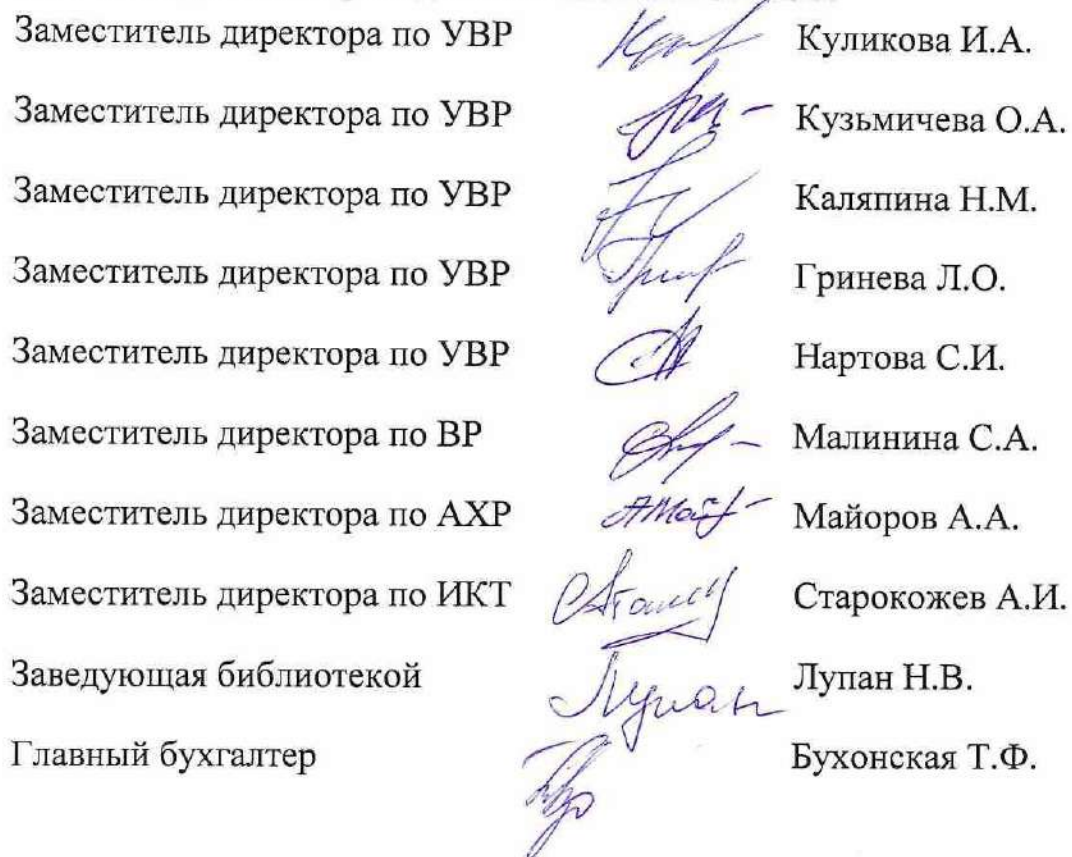 Заместитель директора по УВР Куликова И.А.
Заместитель директора по УВР Кузьмичева О.А.
Заместитель директора по УВР Каляпина Н.М.
Заместитель директора по УВР Гринева Л.О.
Заместитель директора по УВР Нартова С.И.
Заместитель директора по ВР Малинина С.А.
Заместитель директора по АХР Майоров А.А.
Заместитель директора по ИКТ Старокожев А.И.
Заведующая библиотекой Лупан Лупан Н.В.
Главный бухгалтер Бухонская Т.Ф.